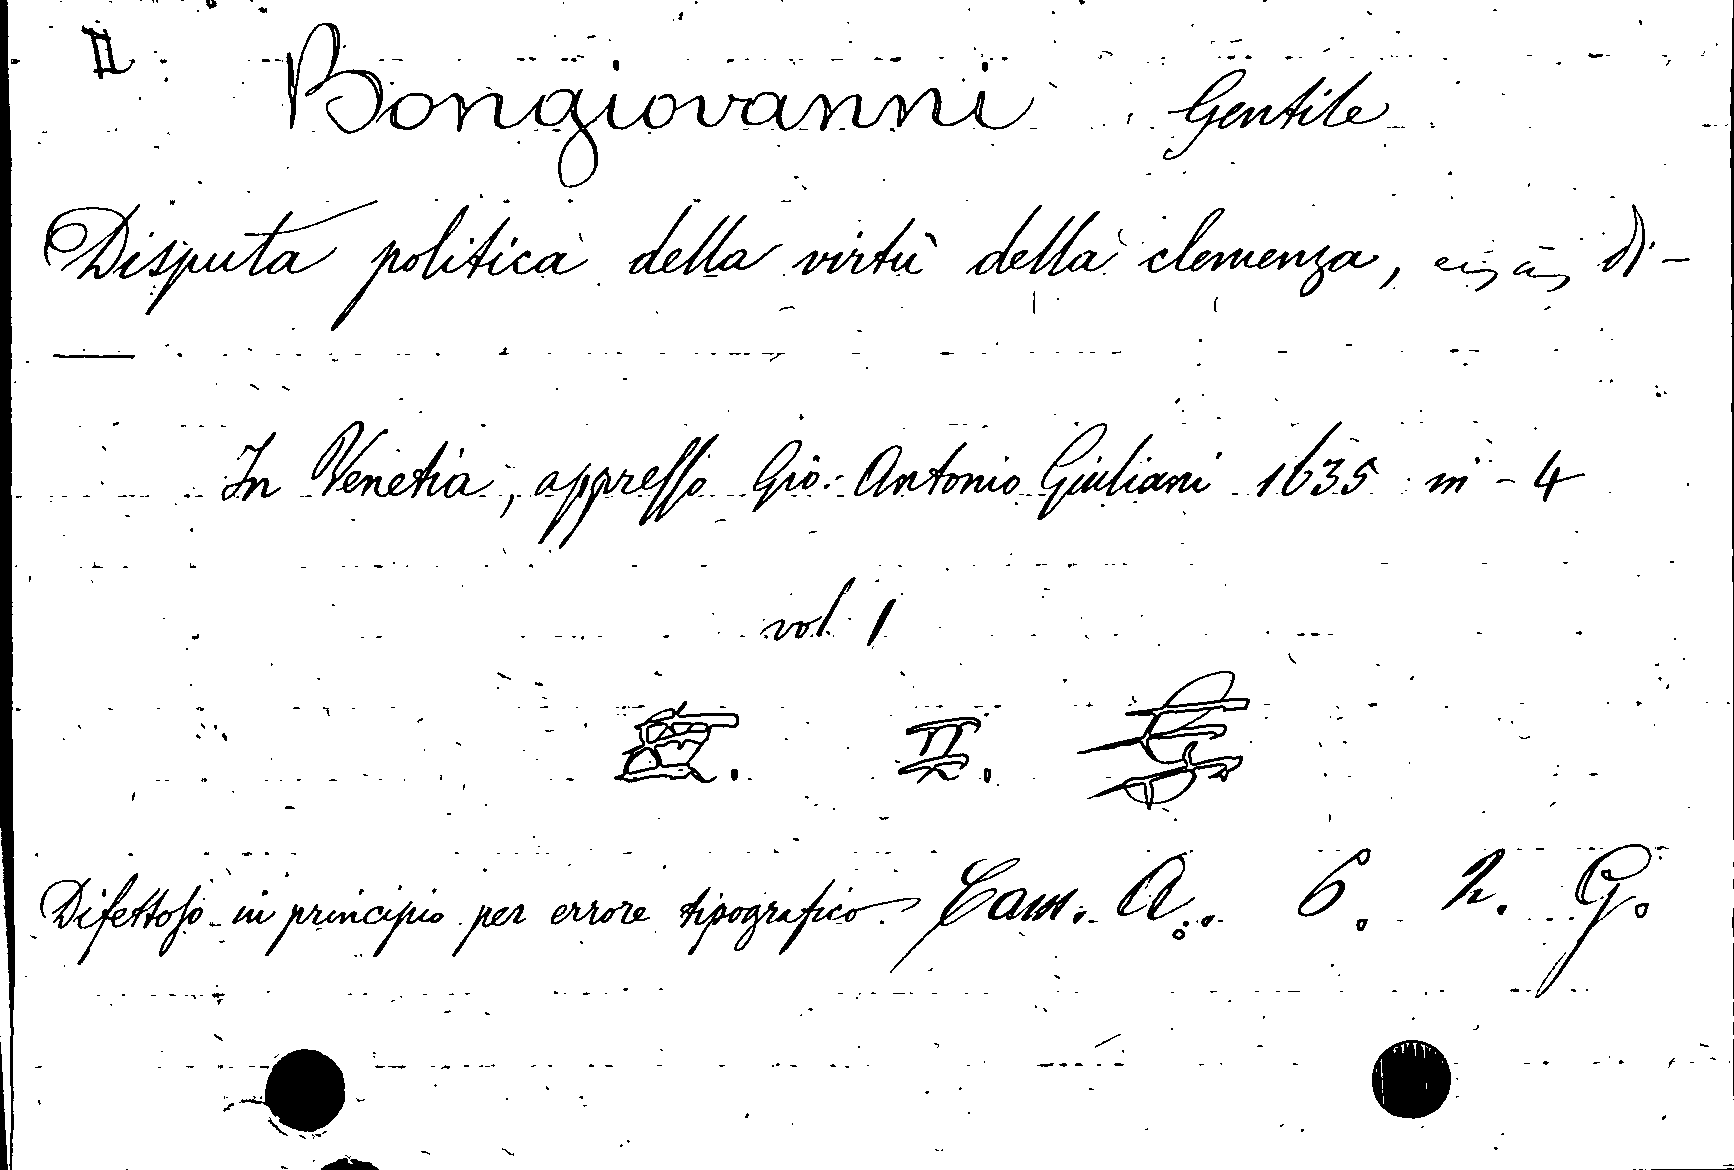 II Bongiovanni Gentile
Disputa politica della virtù della clemenza, di -
In Venetia, appresso Gio: Antonio Giuliani 1635 in - 4
vol. 1
II.
Difettoso in principio per errore tipografico. Cam. A. 6. 2. G.